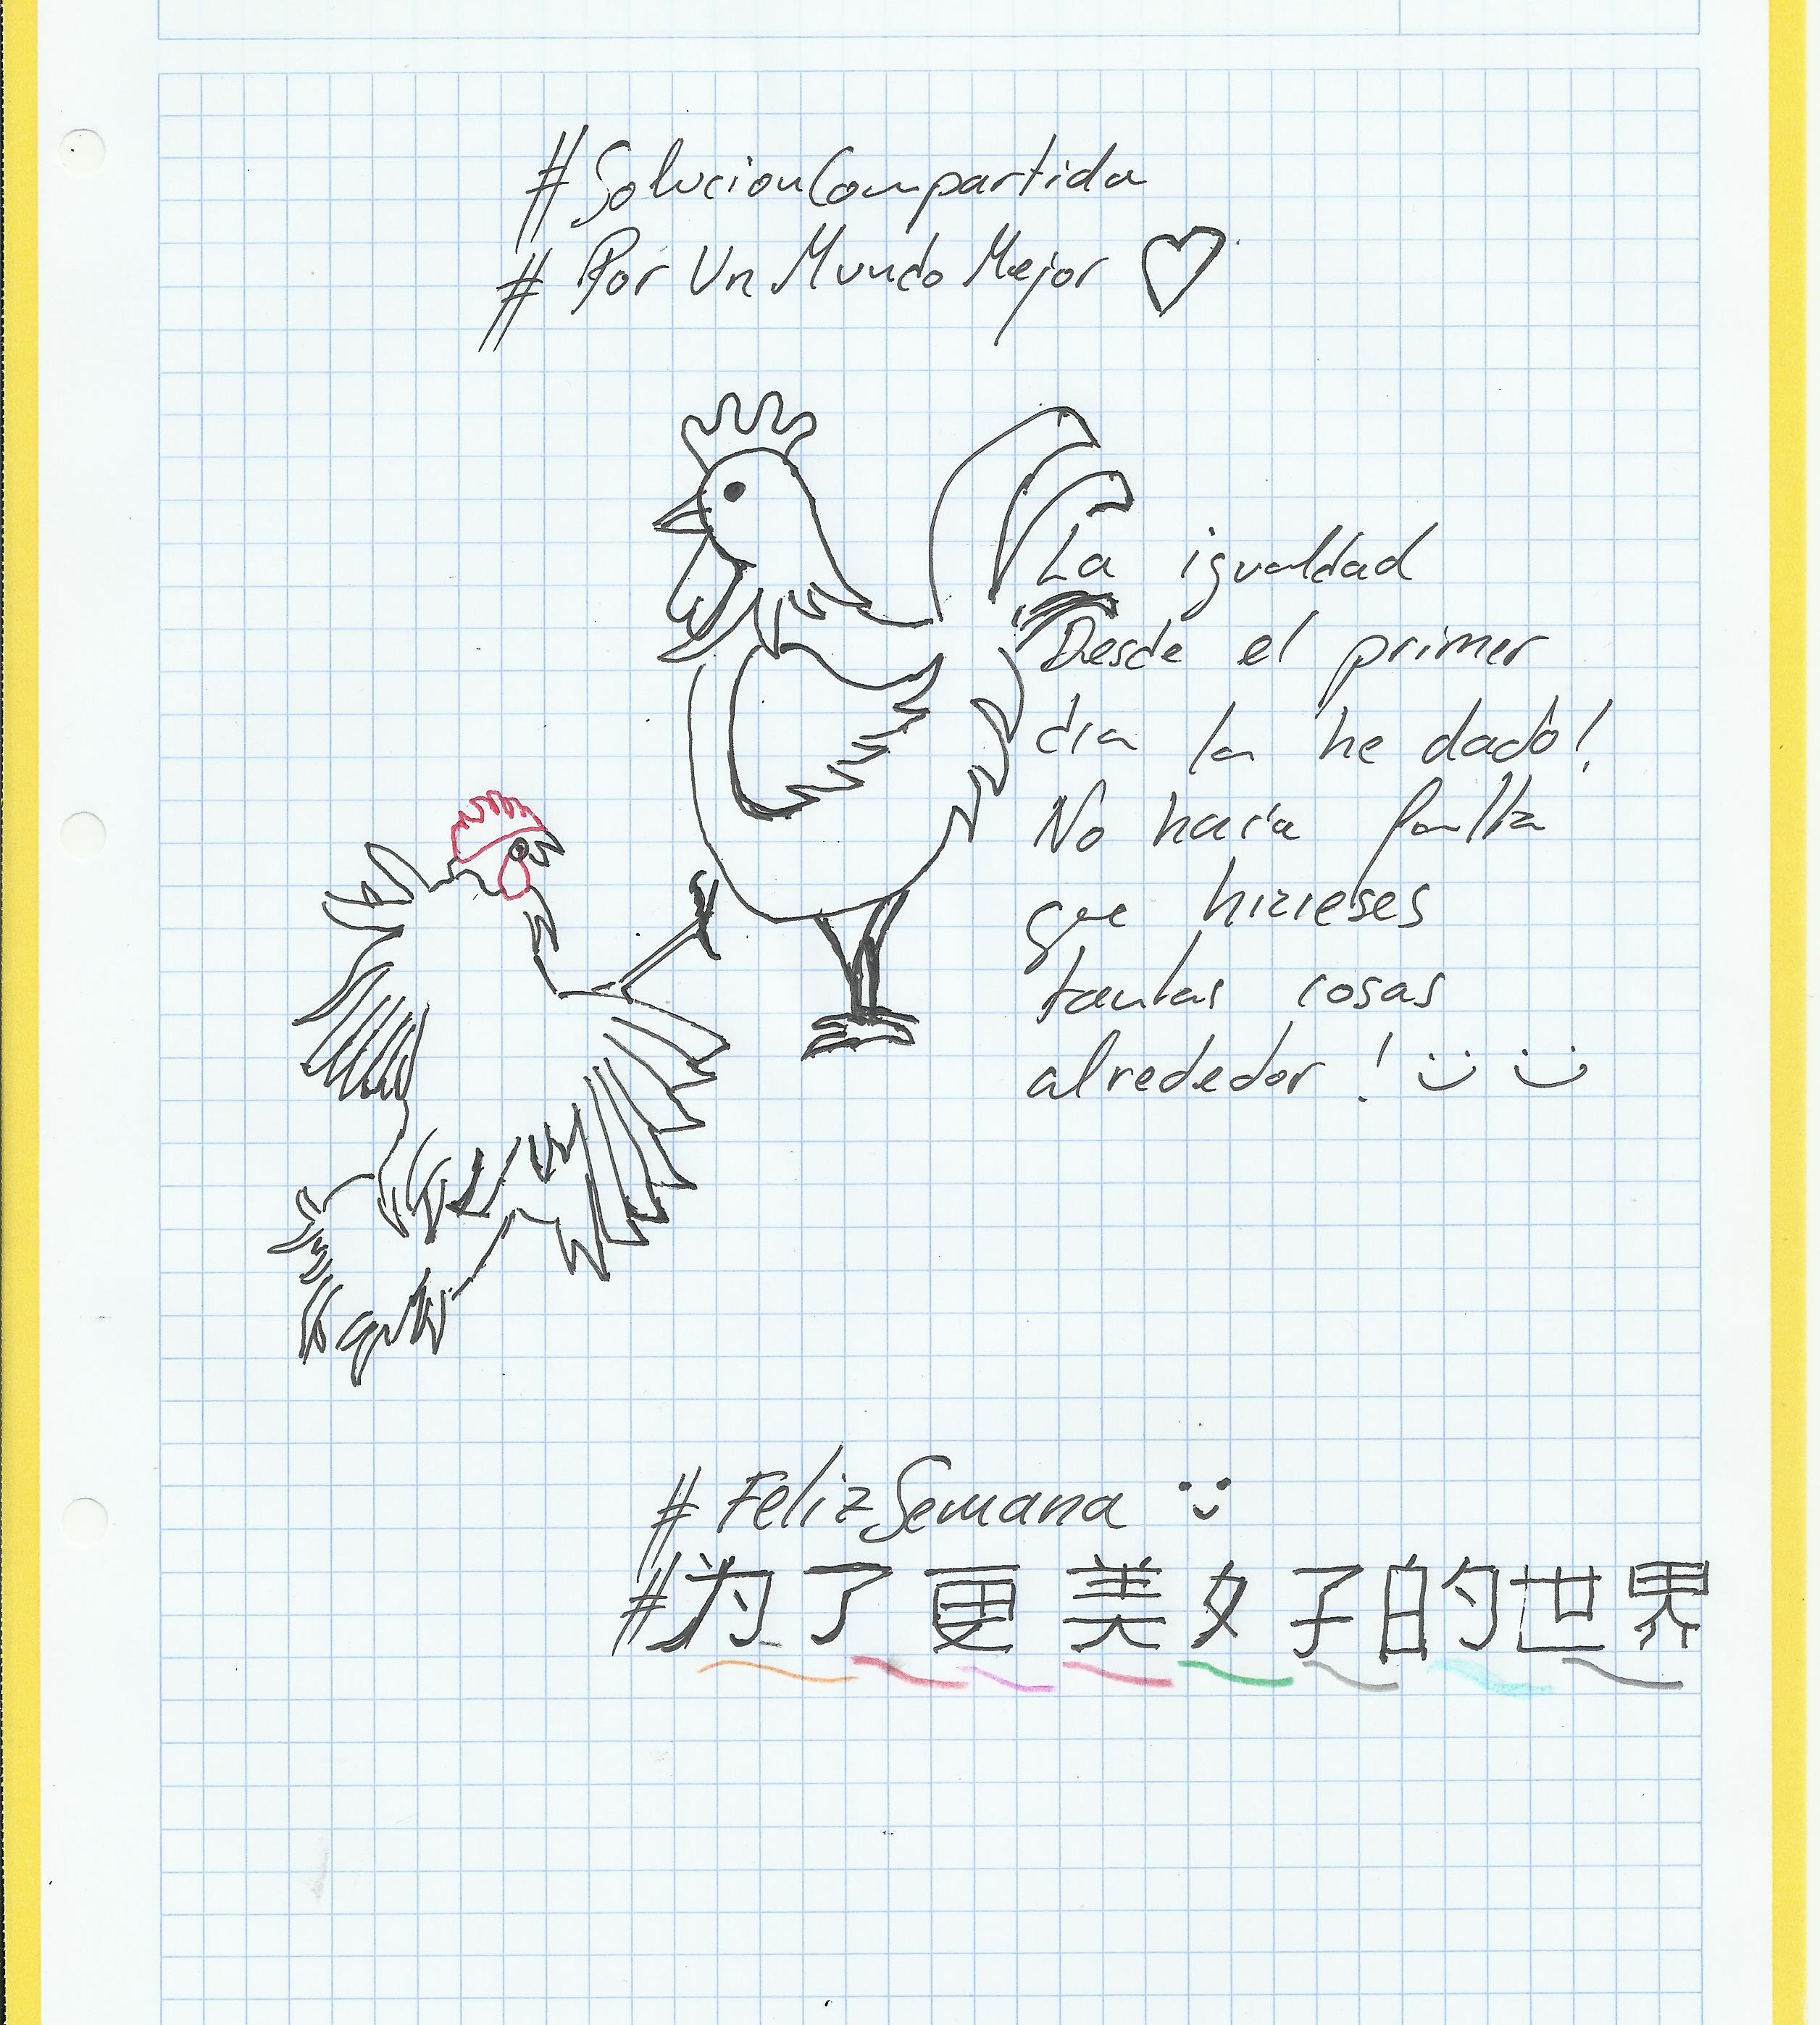 #SolucionCompartida
# Por Un Mundo Mejor ♡
La igualdad
Desde el primer
día la he dado!
No hacía falta
que hicieses
tantas cosas
alrededor! :) :)
#FelizSemana :)
#为了更美好的世界